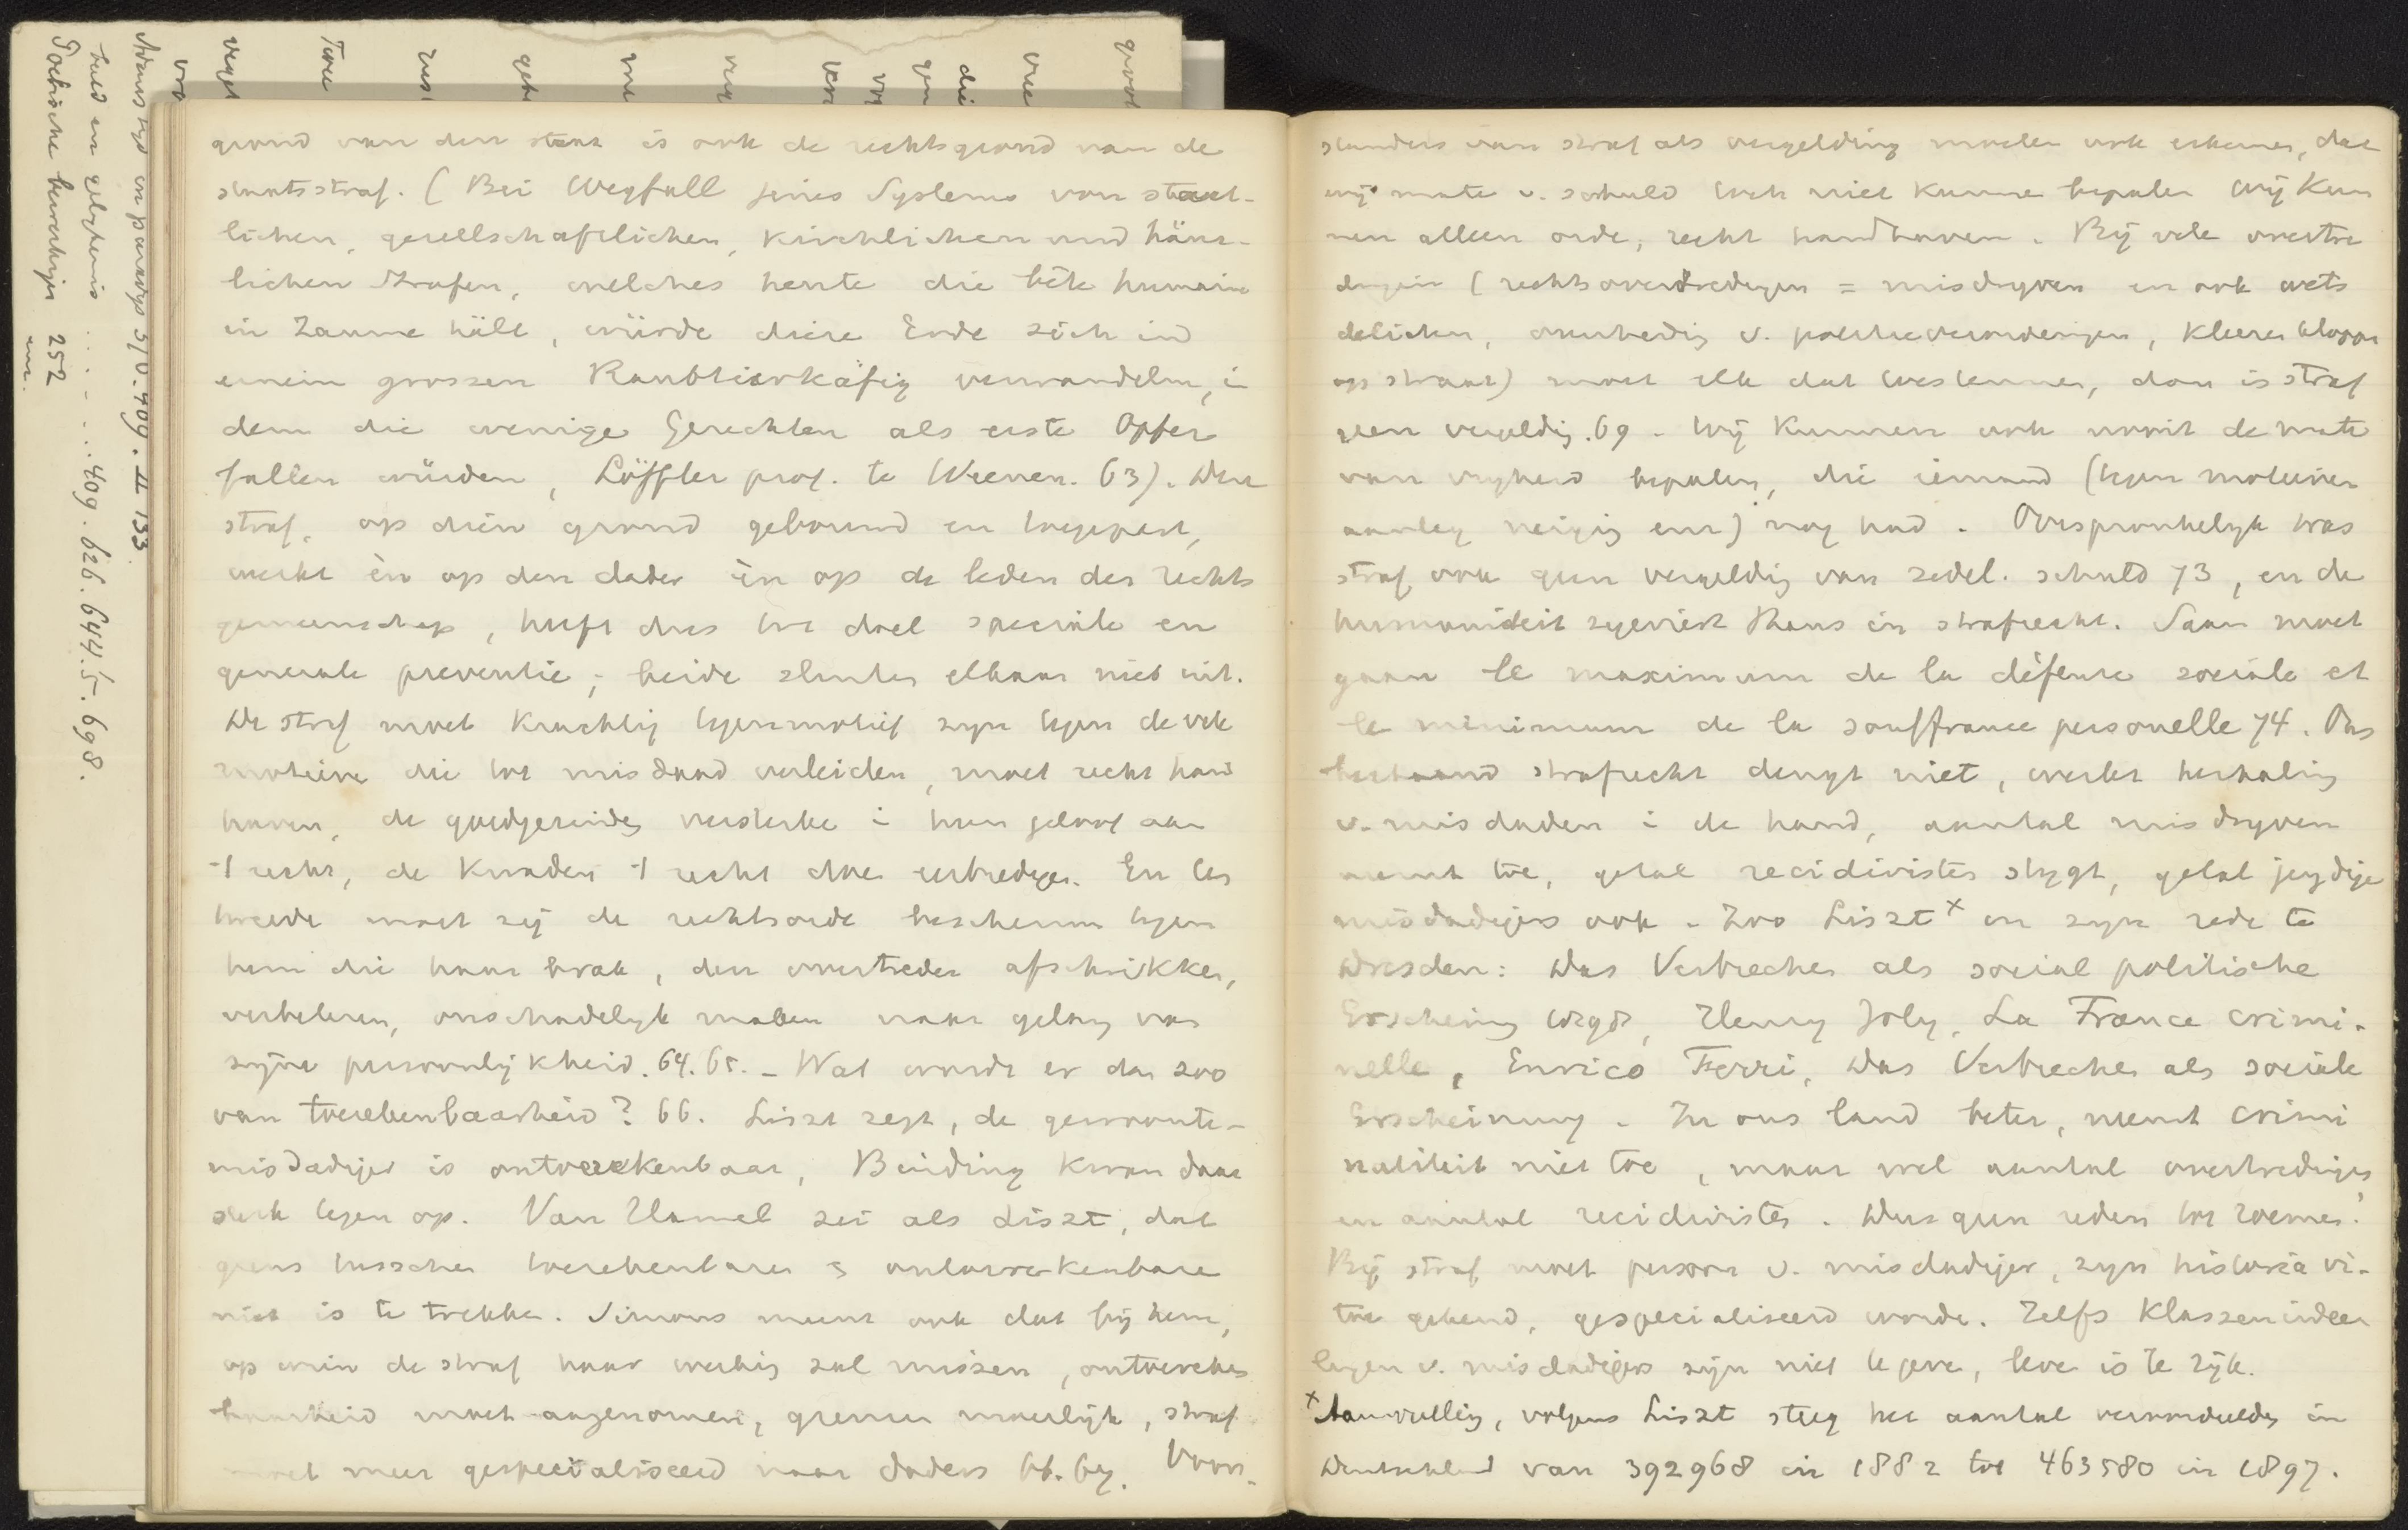 grond van den staat is ook de rechtsgrond van de
staatsstraf. (Bei Wegfall jenes Systems von staat-
lichen, gesellschaftlichen, kirchlichen und häus-
lichen Strafen, welches heute die bête humaine
in Zaume hält, würde diese Erde sich in
einein grossen Raubtierkäfig verwandeln, in
dem die wenige Gerechten als erste Opfer
fallen würden, Löffler prof. te Weenen. 63). Deze
straf, op dien grond gebouwd en toegepast,
werkt èn op den dader èn op de leden der rechts
gemeenschap, heeft dus tot doel speciale en
generale preventie; beide sluiten elkaar niet uit.
De straf moet krachtig tegenmotief zijn tegen de vele
motieven die tot misdaad verleiden, moet recht hand
haven, de goedgezinden versterke i hun geloof aan
't recht, de kwaden 't recht doen eerbiedigen. En ten
tweede moet zij de rechtsorde beschermen tegen
hem die haar brak, den overtreder afschrikken,
verbeteren, onschadelyk maken naar gelang van
zijne persoonlijkheid. 64. 65. – Wat wordt er dan zoo
van toerekenbaarheid? 66. Liszt zegt, de gewoonte-
misdadiger is ontoerekenbaar, Binding kwam daar
sterk tegen op. Van Hamel zei als Liszt, dat
grens tusschen toerekenbaren en ontoerekenbare
niet is te trekken. Simons meent ook dat bij hem,
op wien de straf haar werking zal missen, ontoereken
baarheid moet aangenomen, grenzen moeilijk, straf
moet meer gespecialiseerd naar daders 66. 67. Voor-
standers van straf als vergelding moeten ook erkennen, dat
wij mate v. schuld toch niet kunne bepalen Wij kun
nen alleen orde, recht handhaven. Bij vele overtre
dingen (rechtsovertredingen = misdryven en ook wets
delicten, overtreding v. politieverordeningen, kleeren kloppen
op straat) moet elk dat toestemmen, daar is straf
geen vergeldig. 69 - Wij kunnen ook nooit de mate
van vryheid bepalen, die iemand (tegen motieven
aanleg neiging enz) nog had. Oorspronkelyk was
straf ook geen vergeldig van zedel. schuld 73, en de
humaniteit zegeviert thans in strafrecht. Saam moet
gaan le maximum de la défense sociale et
le minimum de la souffrance personelle 74. Ons
bestaand strafrecht deugt niet, werkt herhaling
v. misdaden i de hand, aantal misdryven
neemt toe, getal recidivisten stygt, getal jeugdige
misdadigers ook. Zoo Liszt x in zyn rede te
Dresden: Das Verbrechen als social politische
Erscheinung 1898, Henry Joly, La France crimi-
nelle, Enrico Ferri, Das Verbrechen als sociale
Erscheinung. In ons land beter, neemt crimi
naliteit niet toe, maar wel aantal overtredingen
en aantal recidivisten. Dus geen reden tot roemen!
Bij straf moet persoon v. misdadiger, zyn historia vi-
tae gekend, gespecialiseerd worde. Zelfs klassenindeer
lingen v. misdadigers zijn niet te geve, leve is te rijk.
x Aanvulling, volgens Liszt steeg het aantal veroordeelden in
Deutschland van 392968 in 1882 tot 463580 in 1897.
Adams tyd in paradys 5/6. 409. II 133
beeld en gelykenis ..... 409. 626. 644.5. 698.
252
enz.
gevol
vree
die
gen
vor
ver
geb
Toe